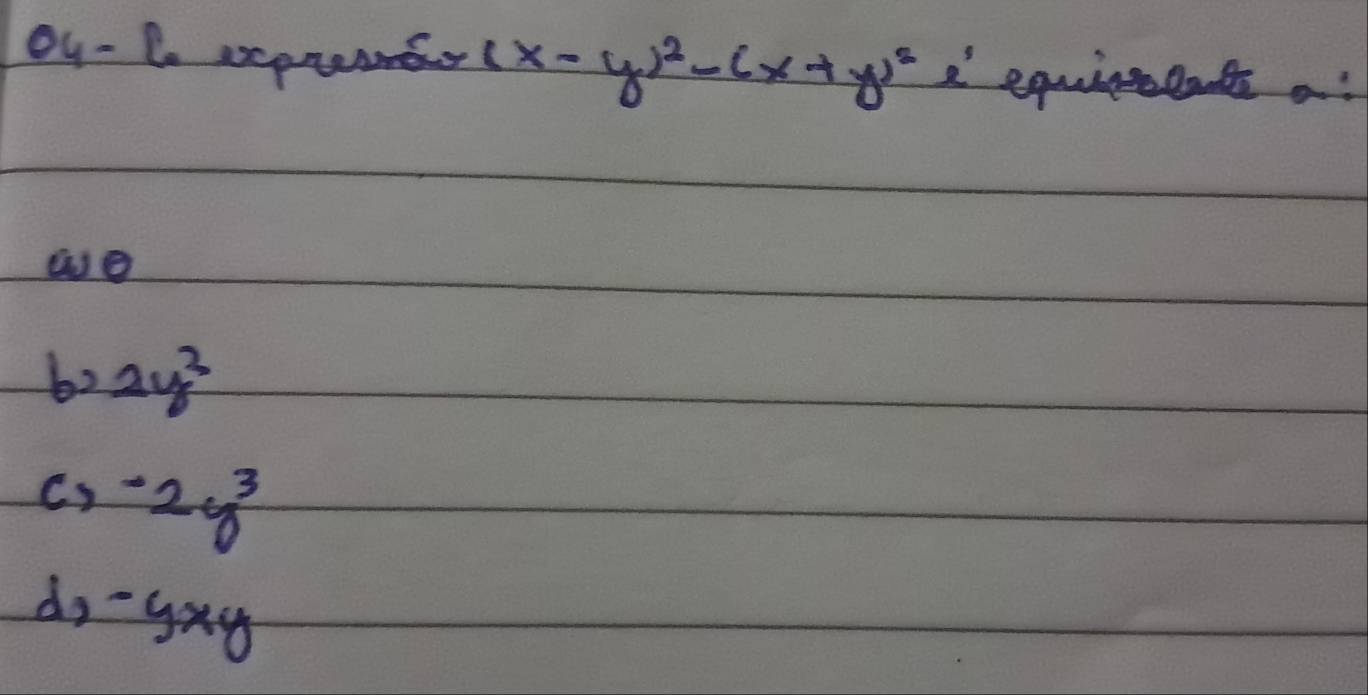 04 - A expressão (x - y)² - (x + y)² é equivalente a:
a) 0
b) 2y³
c) -2y³
d) -4xy